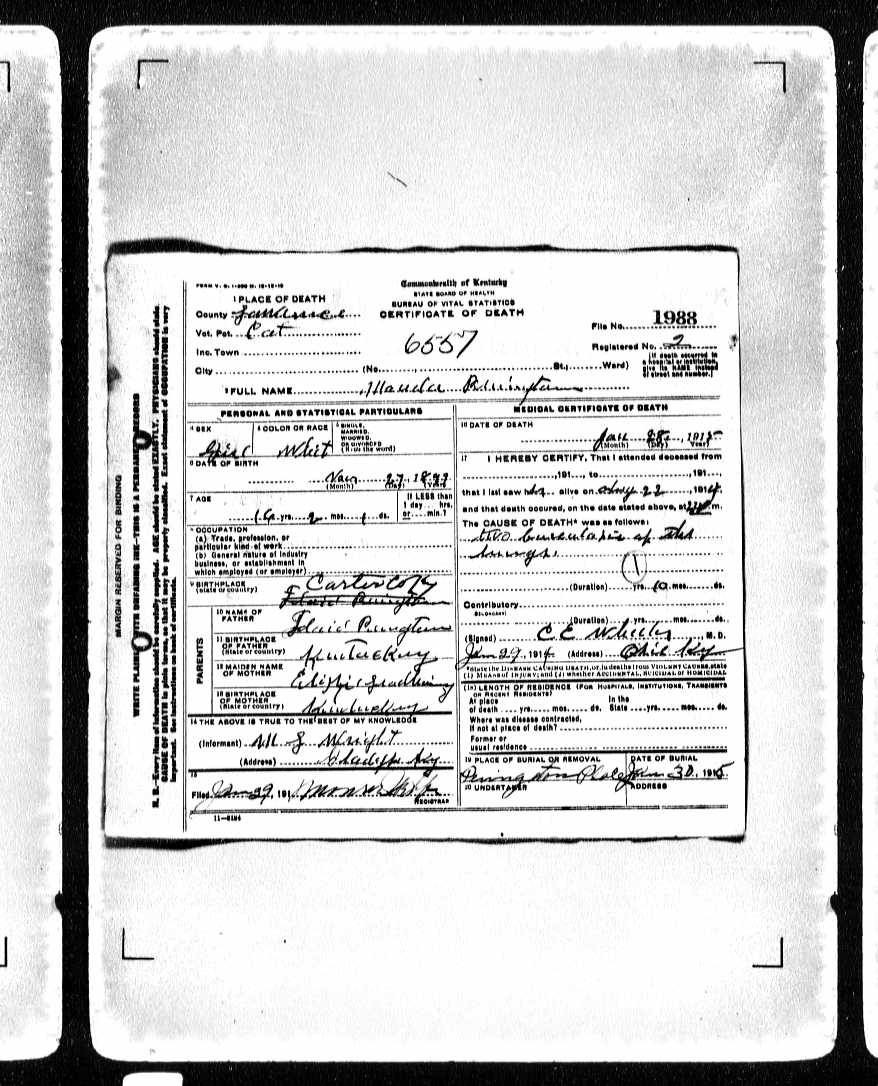 FORM V. S. 1-
Commonwealth of Kentucky
STATE BOARD OF HEALTH
BUREAU OF VITAL STATISTICS
CERTIFICATE OF DEATH
1 PLACE OF DEATH
County
Vot. Pct. Cat
Inc. Town
City (No. St., Ward)
6557
File No. 1988
Registered No. 2
(If death occurred in a hospital or institution, give its NAME instead of street and number.)
2 FULL NAME
PERSONAL AND STATISTICAL PARTICULARS
4 SEX
5 COLOR OR RACE Whit
SINGLE, MARRIED, WIDOWED, OR DIVORCED (Write the word)
6 DATE OF BIRTH
27, 18
(Month) (Day) (Year)
7 AGE
16 yrs. 2 mos. 1 ds.
If LESS than 1 day hrs. or min.?
8 OCCUPATION
(a) Trade, profession, or particular kind of work
(b) General nature of industry business, or establishment in which employed (or employer)
9 BIRTHPLACE (State or country) Carter Co Ky
PARENTS
10 NAME OF FATHER
11 BIRTHPLACE OF FATHER (State or country) Kentuckey
12 MAIDEN NAME OF MOTHER
13 BIRTHPLACE OF MOTHER (State or country) Kentuckey
14 THE ABOVE IS TRUE TO THE BEST OF MY KNOWLEDGE
(Informant) Wright
(Address) Ky
15
Filed Jan 29, 191
REGISTRAR
11-
MEDICAL CERTIFICATE OF DEATH
16 DATE OF DEATH
Jan 28, 1915
(Month) (Day) (Year)
17 I HEREBY CERTIFY, That I attended deceased from
, 191 , to , 191 ,
that I last saw h alive on 22, 1914,
and that death occured, on the date stated above, at m.
The CAUSE OF DEATH* was as follows:
of the
lungs.
1
(Duration) yrs. 10 mos. ds.
Contributory
(SECONDARY)
(Duration) yrs. mos. ds.
(Signed) C E Wheeler, M.D.
Jan 29, 1914 (Address) Ky
*State the DISEASE CAUSING DEATH, or, in deaths from VIOLENT CAUSES, state (1) MEANS OF INJURY; and (2) whether ACCIDENTAL, SUICIDAL or HOMICIDAL
18 LENGTH OF RESIDENCE (FOR HOSPITALS, INSTITUTIONS, TRANSIENTS OR RECENT RESIDENTS)
At place of death yrs. mos. ds. In the State yrs. mos. ds.
Where was disease contracted, if not at place of death?
Former or usual residence
19 PLACE OF BURIAL OR REMOVAL
DATE OF BURIAL
Jan 30, 1915
20 UNDERTAKER
ADDRESS
MARGIN RESERVED FOR BINDING
WRITE PLAINLY WITH UNFADING INK—THIS IS A PERMANENT RECORD
N. B.—Every item of information should be carefully supplied. AGE should be stated EXACTLY. PHYSICIANS should state
CAUSE OF DEATH in plain terms so that it may be properly classified. Exact statement of OCCUPATION is very
important. See instructions on back of certificate.